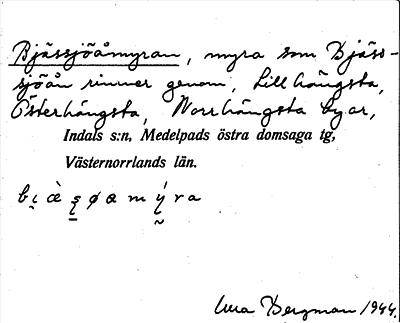 Bjässjöåmyran, myra som Bjäss-
sjöån rinner genom, Lillhängsta,
Österhängsta, Norrhängsta byar,
Indals s:n, Medelpads östra domsaga tg,
Västernorrlands län.
Bergman 1944.